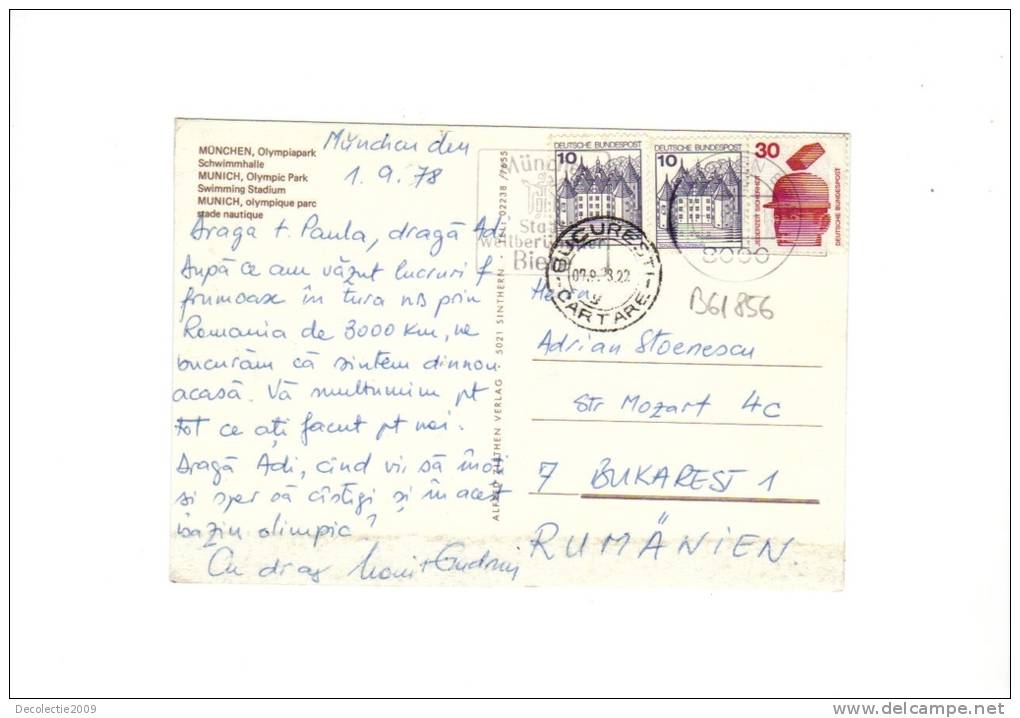 MÜNCHEN, Olympiapark
Schwimmhalle
MUNICH, Olympic Park
Swimming Stadium
MUNICH, olympique parc
stade nautique
München den
1.9.78
Draga t. Paula, dragă Adi
După ce am văzut lucruri f
frumoase în tura nß prin
Romania de 3000 km, ne
bucurăm că sintem dinnou
acasă. Vă multumim pt
tot ce ați facut pt noi.
Dragă Adi, cînd vii să înoți
si sper să cîstigi și în acest
bazin olimpic?
Cu drag
ALFRED ZIETHEN VERLAG · 5021 SINTHERN · Tel. 02238 / 7655
DEUTSCHE BUNDESPOST
10
DEUTSCHE BUNDESPOST
10
30
JEDERZEIT SICHERHEIT
DEUTSCHE BUNDESPOST
Münch
Sta
weltberühmter
Bie
8000
BUCUREȘTI
CARTARE
B61856
Adrian Stoenescu
Str Mozart 4c
7 BUKAREST 1
RUMÄNIEN.
Decolectie2009
delcampe.net